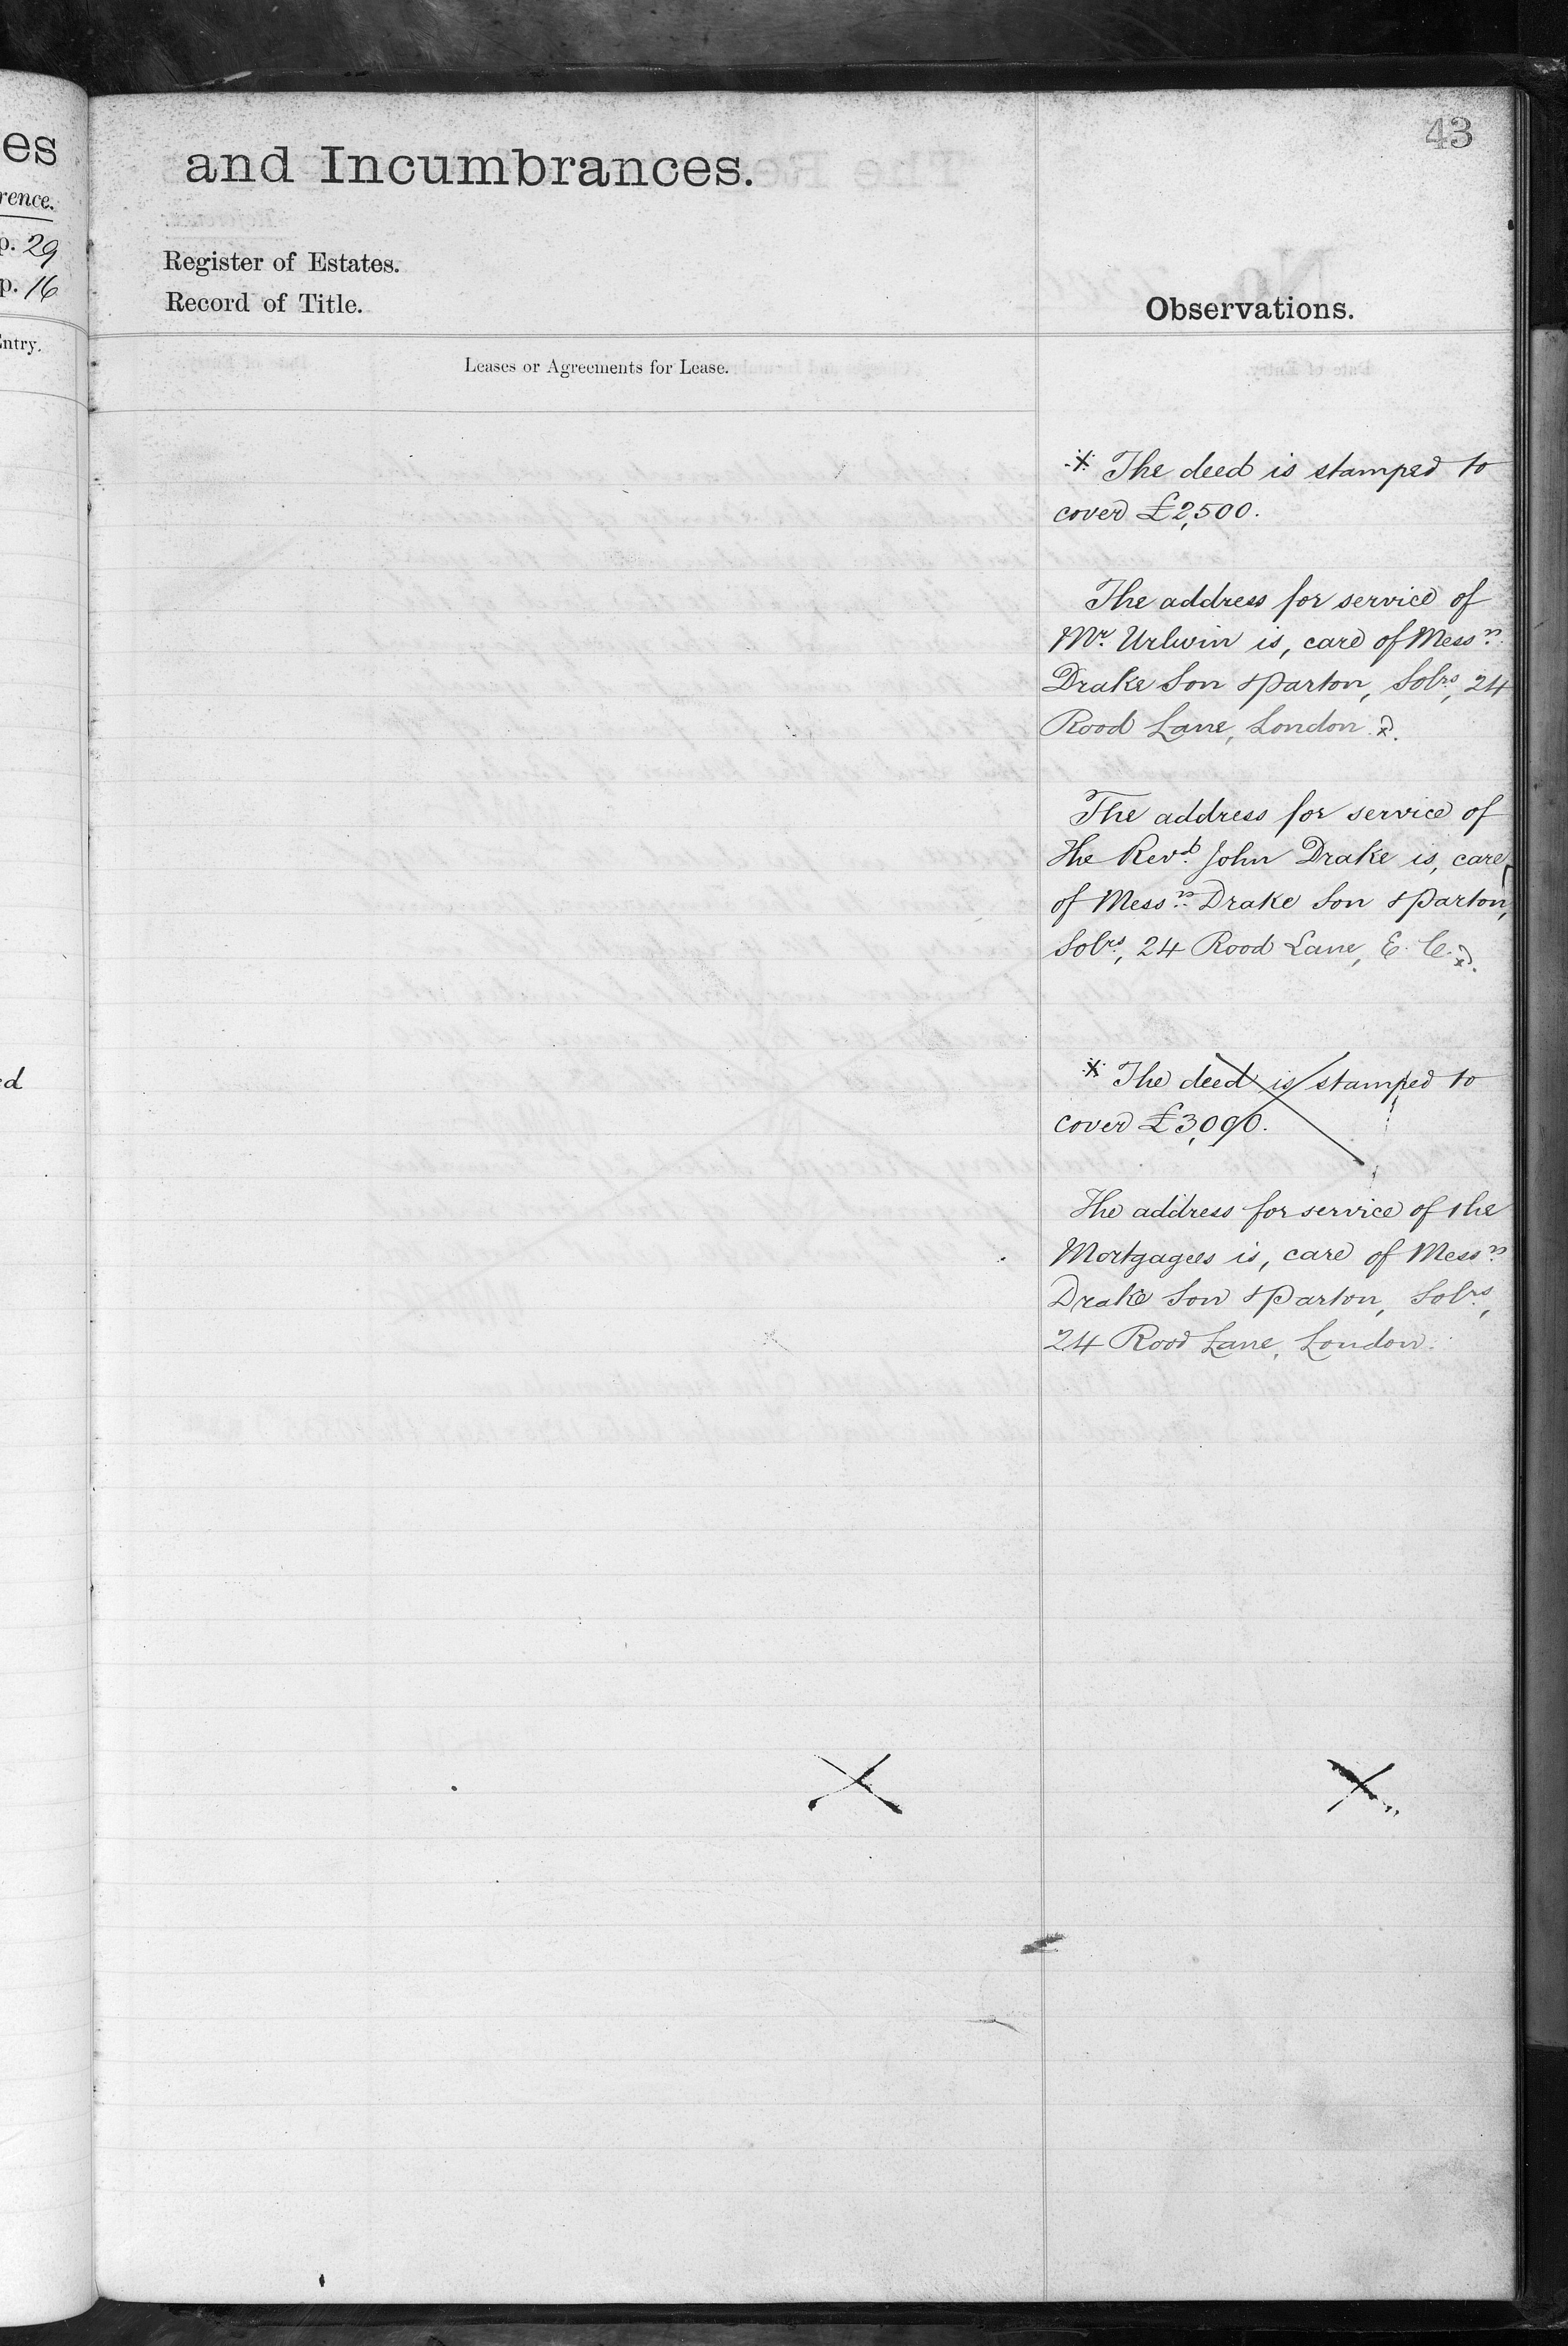 es
rence.
p. 29
p. 16
Entry.
ed
43
and Incumbrances.
Register of Estates.
Record of Title.
Observations.
Leases or Agreements for Lease.
* The deed is stamped to
cover £2,500.
The address for service of
Mr. Urlwin is, care of Messrs.
Drake Son & Parton, Solrs, 24
Rood Lane, London
The address for service of
the Revd. John Drake is, care
of Messrs. Drake Son & Parton,
Solrs, 24 Rood Lane, E.C.
* The deed is stamped to
cover £3,000.
The address for service of the
Mortgagees is, care of Messrs.
Drake Son & Parton, Solrs,
24 Rood Lane, London.